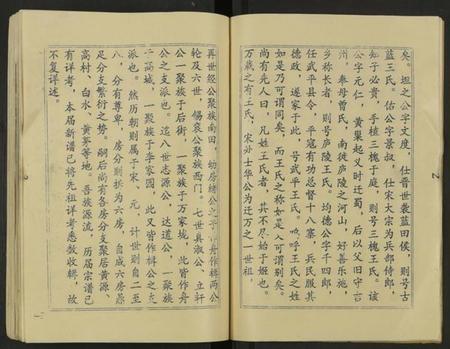 矣。坦之公字文度，仕晋世袭蓝田侯，则号古
蓝王氏。佑公字景叔，仕宋大宗为兵部侍郎，
知子必贵，手植三槐于庭，则号三槐王氏。该
公字元仁，黄巢起义时迁蜀，后以父旧守吉
州，奉母曾氏，南徙庐陵之河山，好善乐施，
乡称长者，则号庐陵王氏。均德公字千四郎，
任武平县令，平寇有功总督十八寨，兵民服其
德政，遂家于此，号武平王氏。呜呼王氏之姓
如是乃可谓同矣。而王氏之称如是，可谓别矣。
尚有先人曰，凡姓王者，其不尽始于姬也。
万载之有王氏，宋处士华公为迁万之一世祖，
再世经公聚族南田，幼房绪公之子舟作梓两公
轮及六世，锡衮公聚族西门。七世真淑公、立轩
公一聚族于后街，一聚族于万家城，此皆作舟
公之支派也。迄八世志源公、达道公，一聚族
城，一聚族于李家园，此又皆作梓公之支
派也。然历朝则属于宋、元，计世则自二至
八，分有尊卑，房分则析为六房，自成六房鼎
足分支繁衍之势。嗣后尚有各房分支聚居黄源、
高村、白水、黄茅等地。吾族源流，历届宗谱已
有详考，本届新谱已将先祖详考悉数收辑，故
不复详述。
2